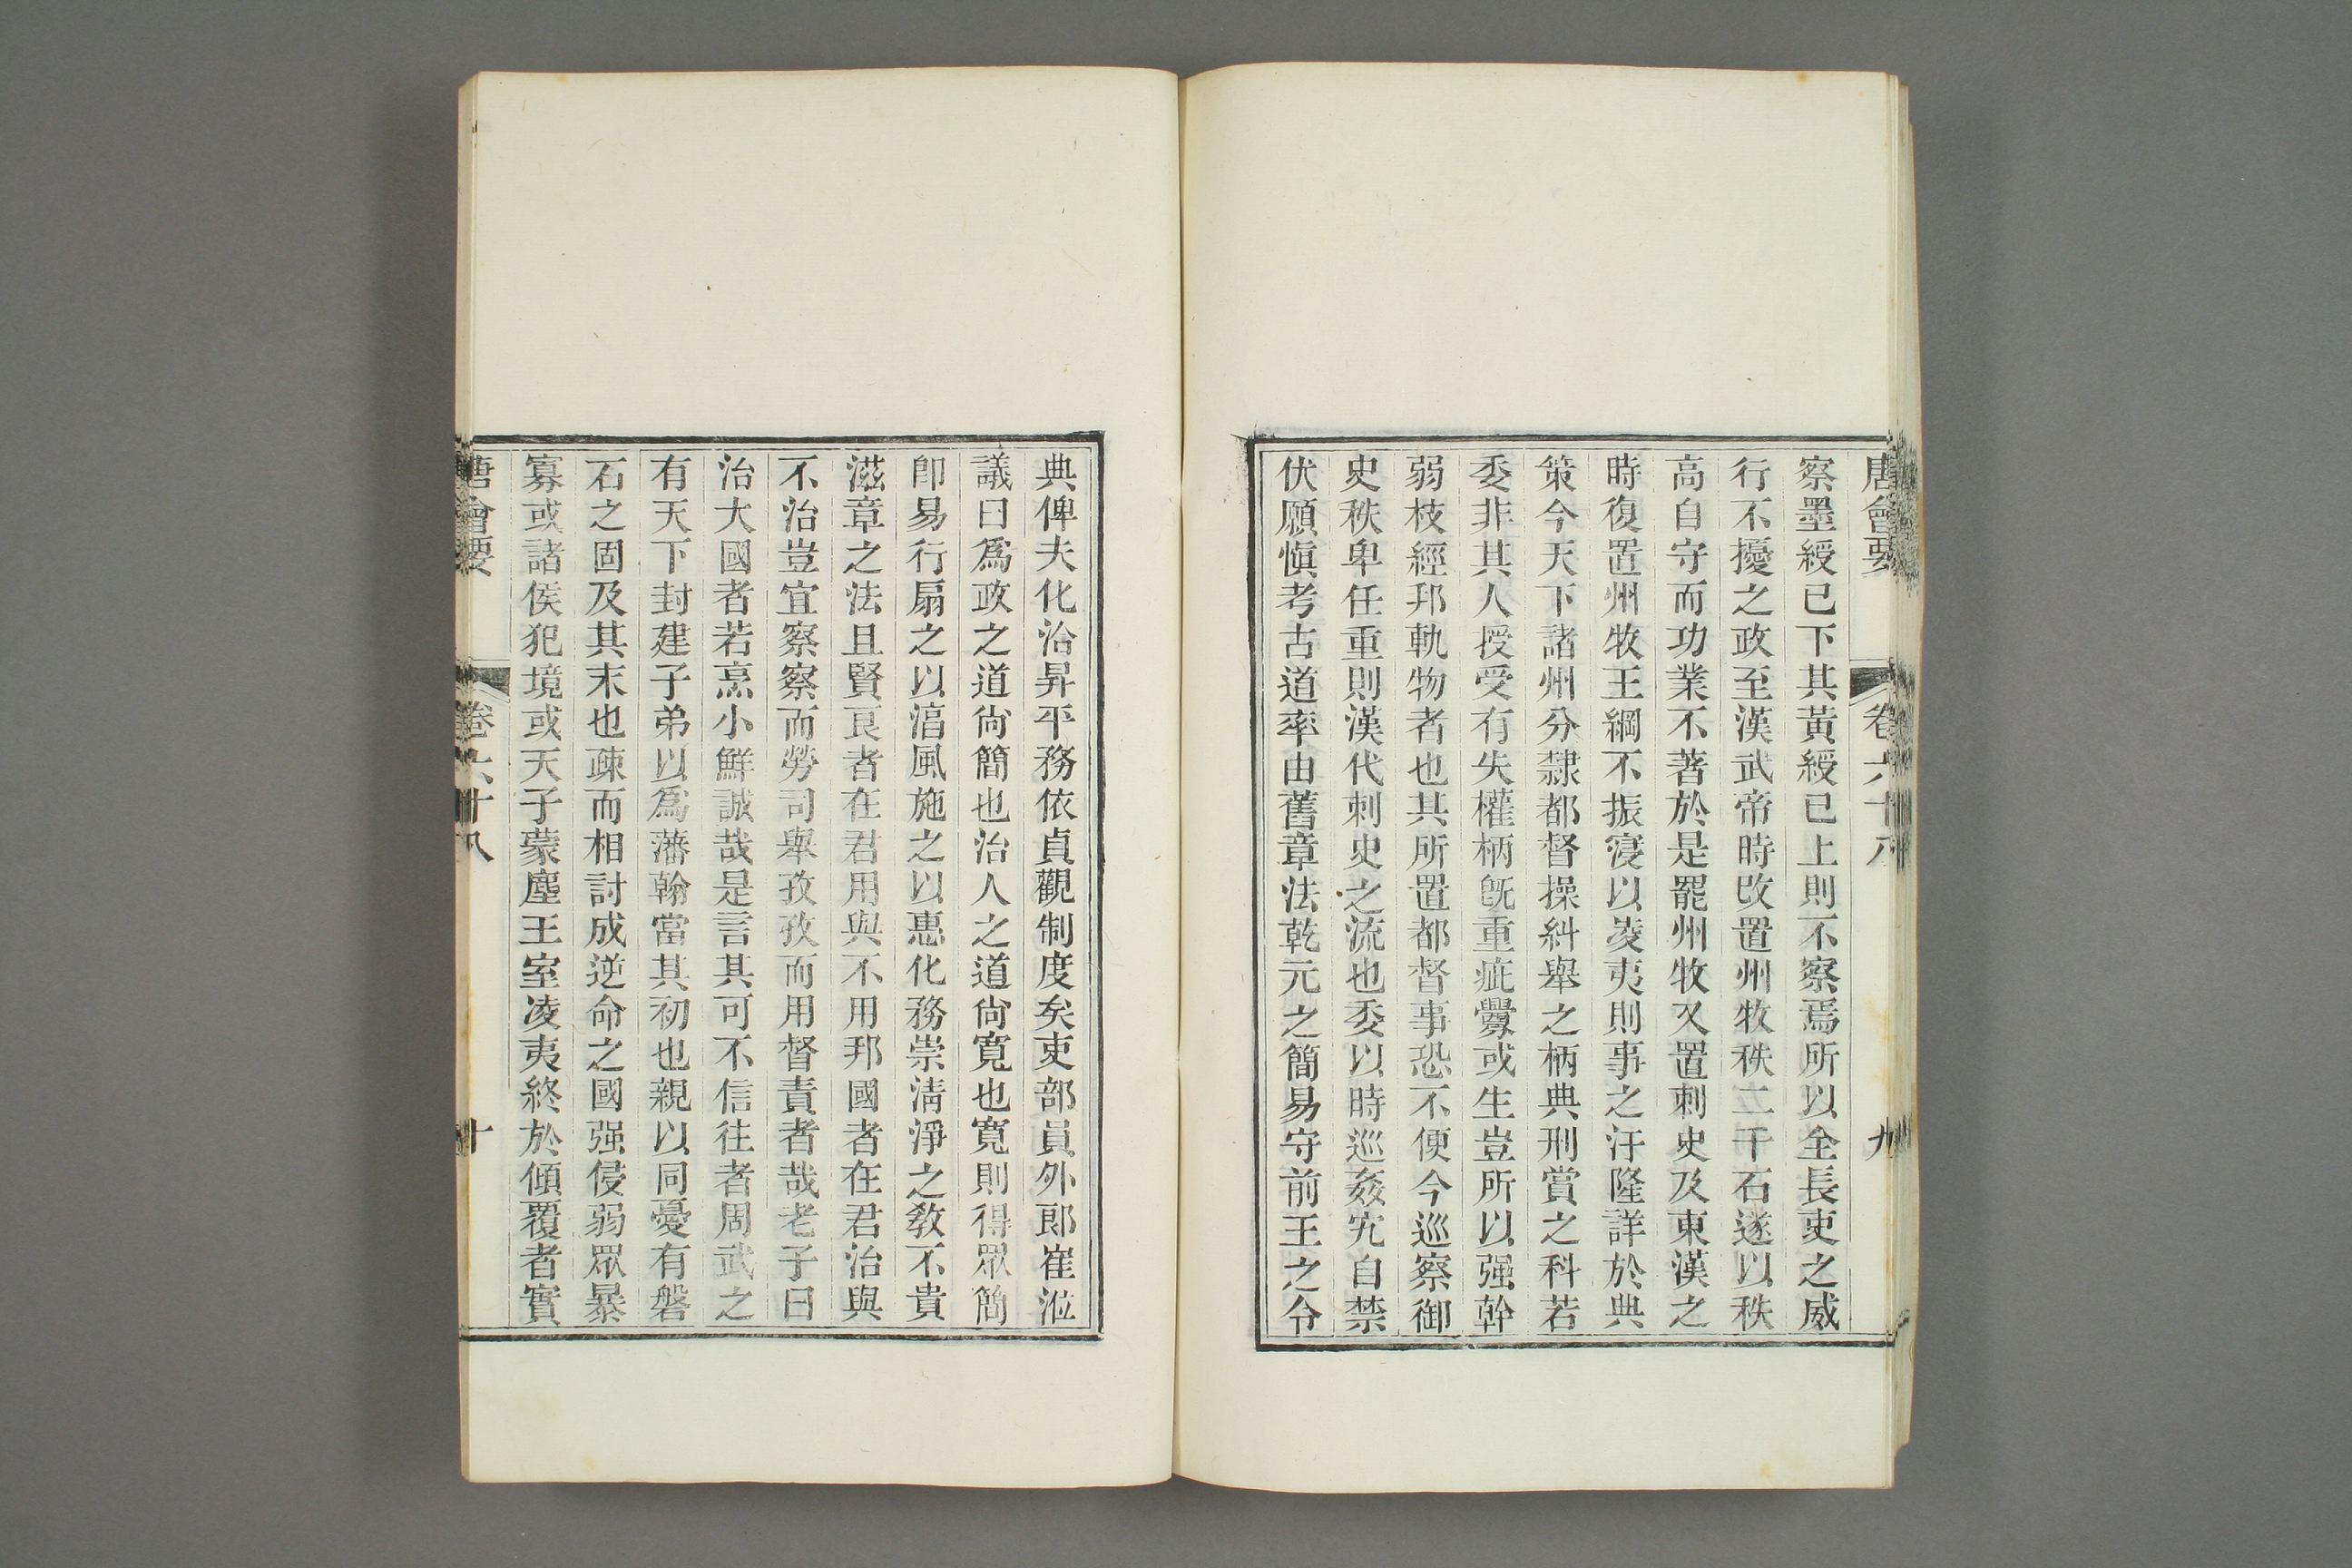 唐會要 卷六十八 九
察墨綬已下其黃綬已上則不察焉所以全長吏之威
行不擾之政至漢武帝時改置州牧秩二千石遂以秩
高自守而功業不著於是罷州牧又置刺史及東漢之
時復置州牧王綱不振寖以凌夷則事之汙隆詳於典
策今天下諸州分隸都督操糾舉之柄典刑賞之科若
委非其人授受有失權柄旣重疵釁或生豈所以强幹
弱枝經邦軌物者也其所置都督事恐不便今巡察御
史秩卑任重則漢代刺史之流也委以時巡姦宄自禁
伏願愼考古道率由舊章法乾元之簡易守前王之令
典俾夫化洽昇平務依貞觀制度矣吏部員外郞崔涖
議曰爲政之道尙簡也治人之道尙寬也寬則得眾簡
卽易行扇之以淳風施之以惠化務崇淸淨之敎不貴
滋章之法且賢良者在君用與不用邦國者在君治與
不治豈宜察察而勞司舉孜孜而用督責者哉老子曰
治大國者若烹小鮮誠哉是言其可不信往者周武之
有天下封建子弟以爲藩翰當其初也親以同憂有磐
石之固及其末也疎而相討成逆命之國强侵弱眾暴
寡或諸侯犯境或天子蒙塵王室凌夷終於傾覆者實
唐會要 卷六十八 十